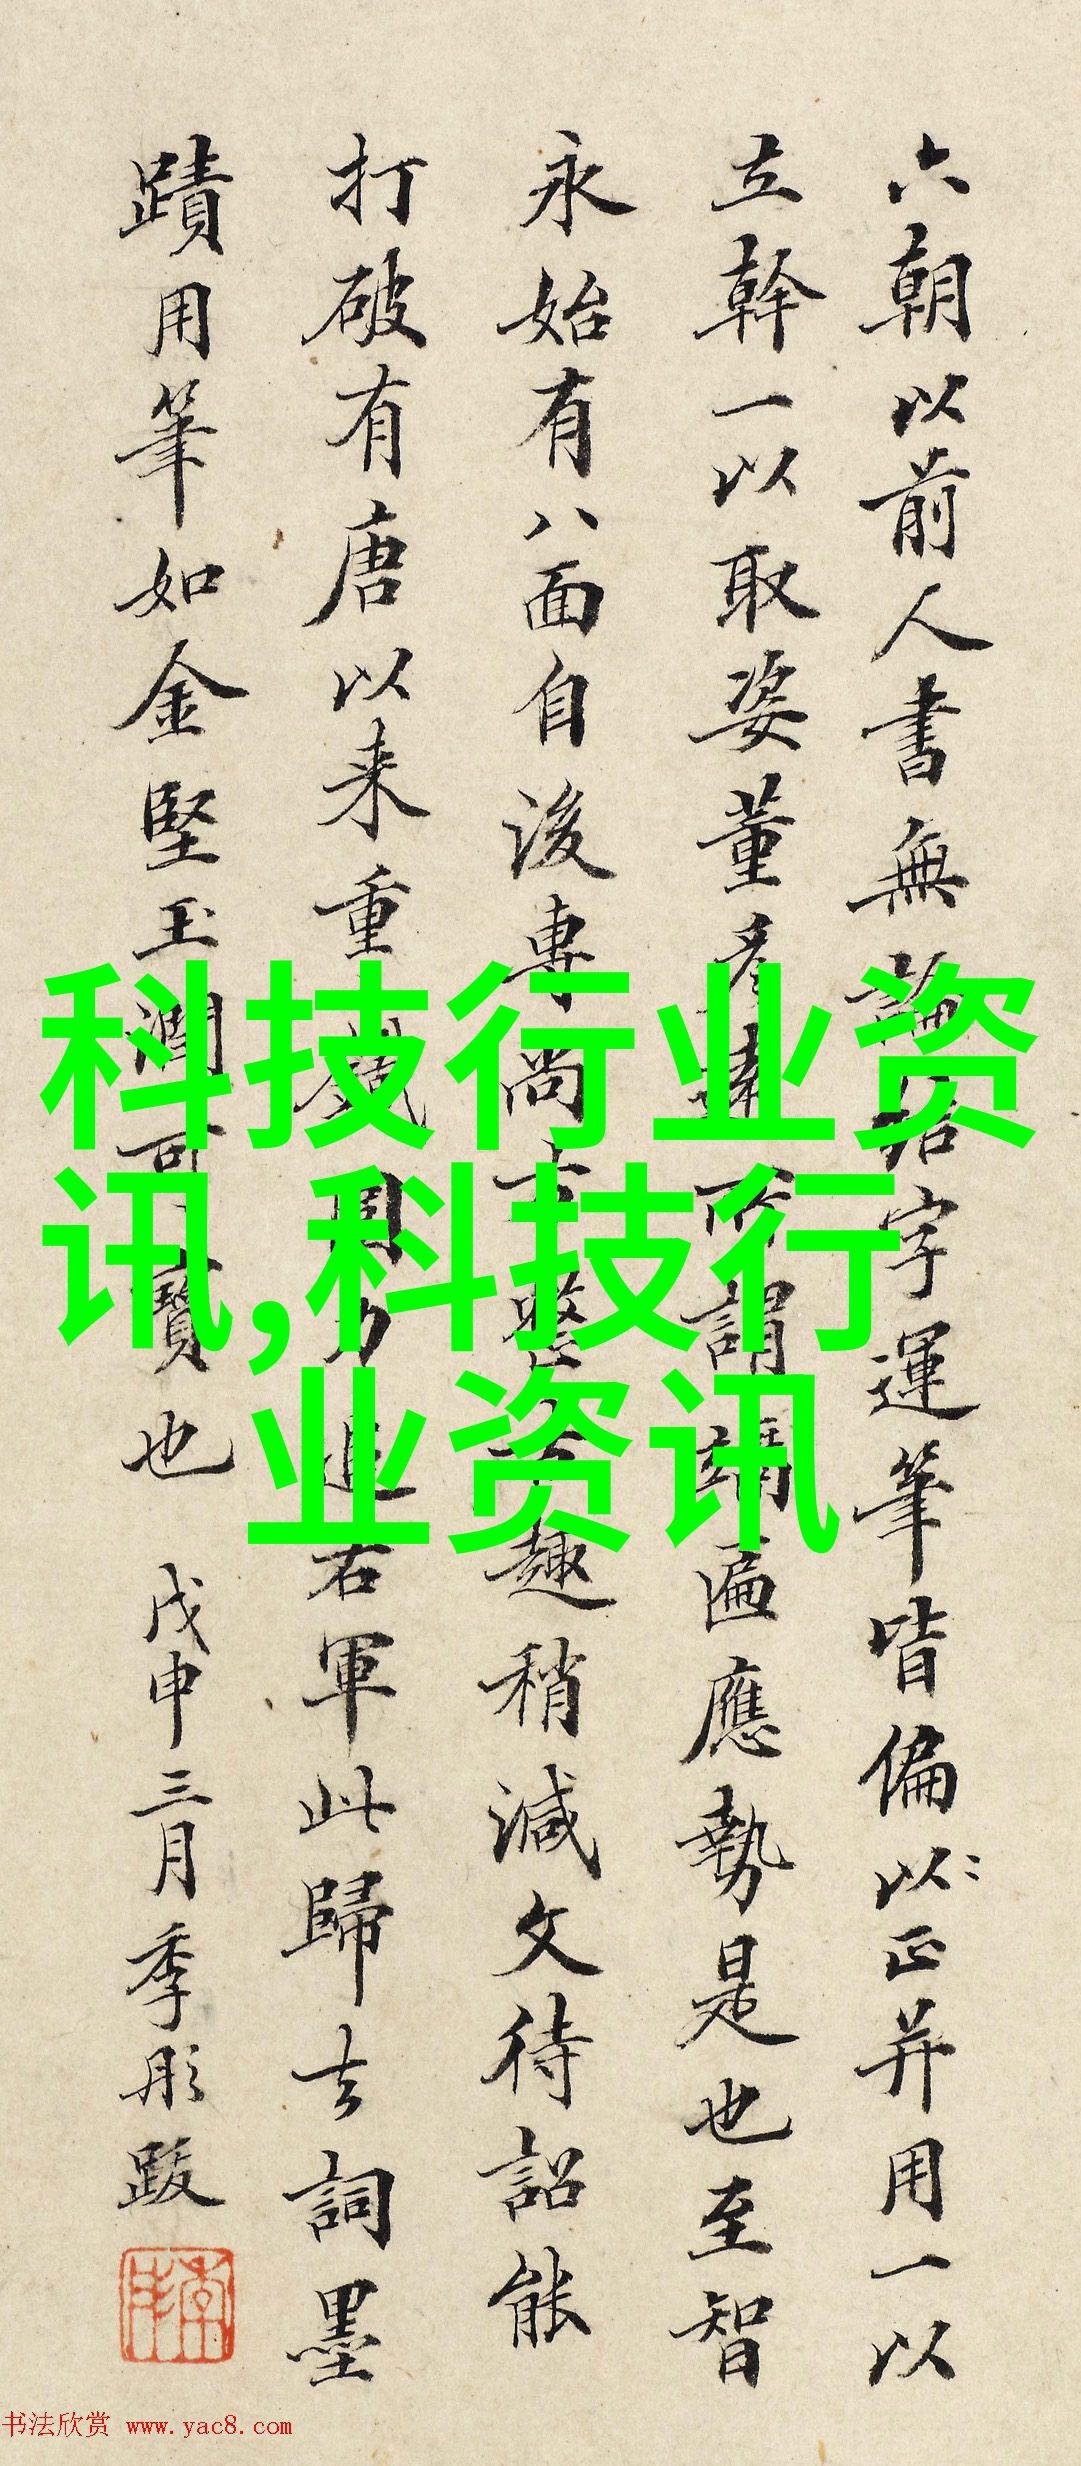 六朝以前人書無論結字運筆皆偏以正并用一以
立幹一以取姿董彦遠所謂隔遍應勢是也至智
永始有八面自後專尚古趣稍減文待詔能
打破有唐以来重追右軍此歸去詞墨
蹟用筆如金堅玉潤可寶也 戊申三月季彤跋
科技行业资
讯,科技行
业资讯
书法欣赏 www.yac8.com